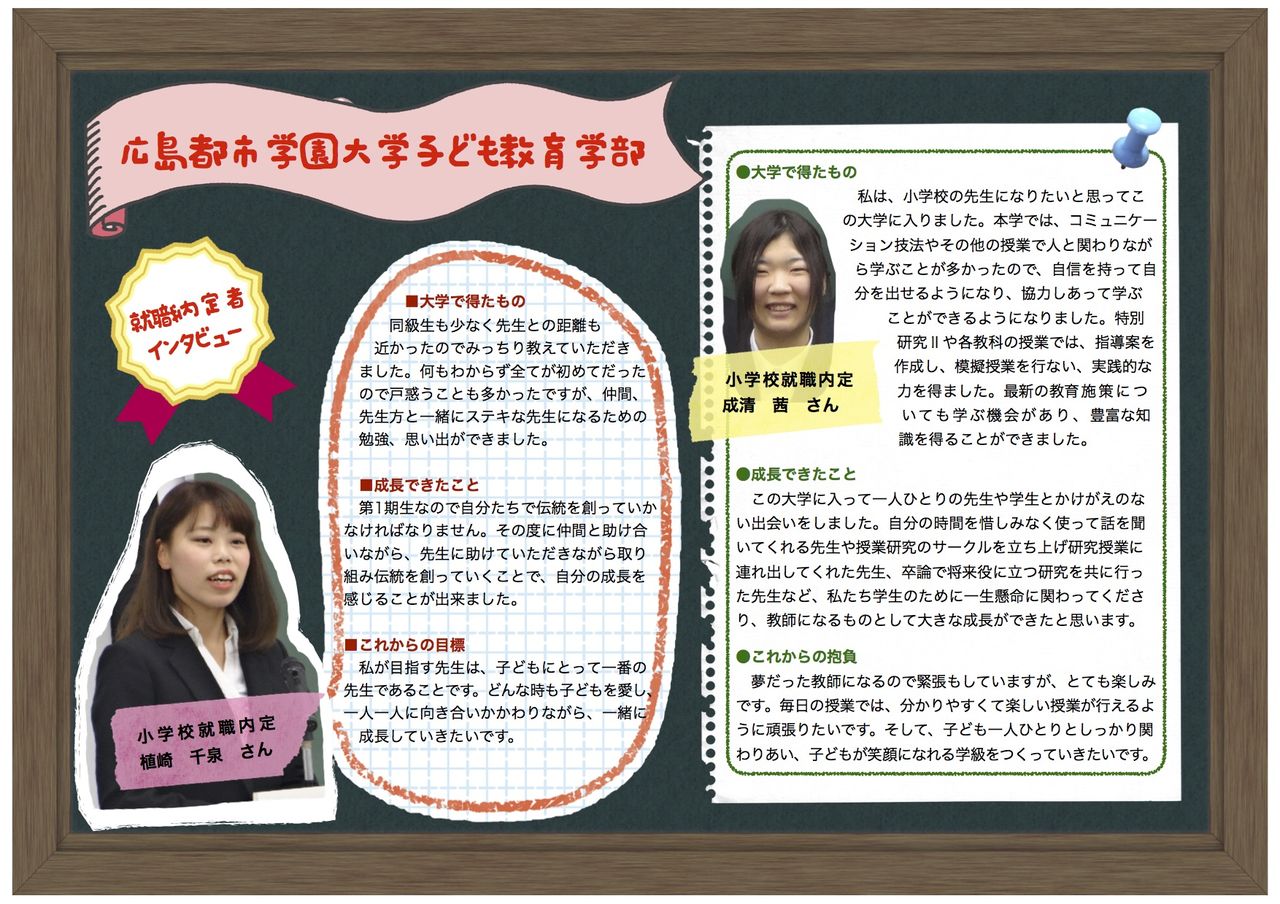 広島都市学園大学子ども教育学部
就職内定者
インタビュー
小学校就職内定
植崎　千泉　さん
■大学で得たもの
同級生も少なく先生との距離も
近かったのでみっちり教えていただき
ました。何もわからず全てが初めてだった
ので戸惑うことも多かったですが、仲間、
先生方と一緒にステキな先生になるための
勉強、思い出ができました。
■成長できたこと
第1期生なので自分たちで伝統を創っていか
なければなりません。その度に仲間と助け合
いながら、先生に助けていただきながら取り
組み伝統を創っていくことで、自分の成長を
感じることが出来ました。
■これからの目標
私が目指す先生は、子どもにとって一番の
先生であることです。どんな時も子どもを愛し、
一人一人に向き合いかかわりながら、一緒に
成長していきたいです。
●大学で得たもの
私は、小学校の先生になりたいと思ってこ
の大学に入りました。本学では、コミュニケー
ション技法やその他の授業で人と関わりなが
ら学ぶことが多かったので、自信を持って自
分を出せるようになり、協力しあって学ぶ
ことができるようになりました。特別
研究Ⅱや各教科の授業では、指導案を
作成し、模擬授業を行ない、実践的な
力を得ました。最新の教育施策につ
いても学ぶ機会があり、豊富な知
識を得ることができました。
小学校就職内定
成清　茜　さん
●成長できたこと
この大学に入って一人ひとりの先生や学生とかけがえのな
い出会いをしました。自分の時間を惜しみなく使って話を聞
いてくれる先生や授業研究のサークルを立ち上げ研究授業に
連れ出してくれた先生、卒論で将来役に立つ研究を共に行っ
た先生など、私たち学生のために一生懸命に関わってくださ
り、教師になるものとして大きな成長ができたと思います。
●これからの抱負
夢だった教師になるので緊張もしていますが、とても楽しみ
です。毎日の授業では、分かりやすくて楽しい授業が行えるよ
うに頑張りたいです。そして、子ども一人ひとりとしっかり関
わりあい、子どもが笑顔になれる学級をつくっていきたいです。